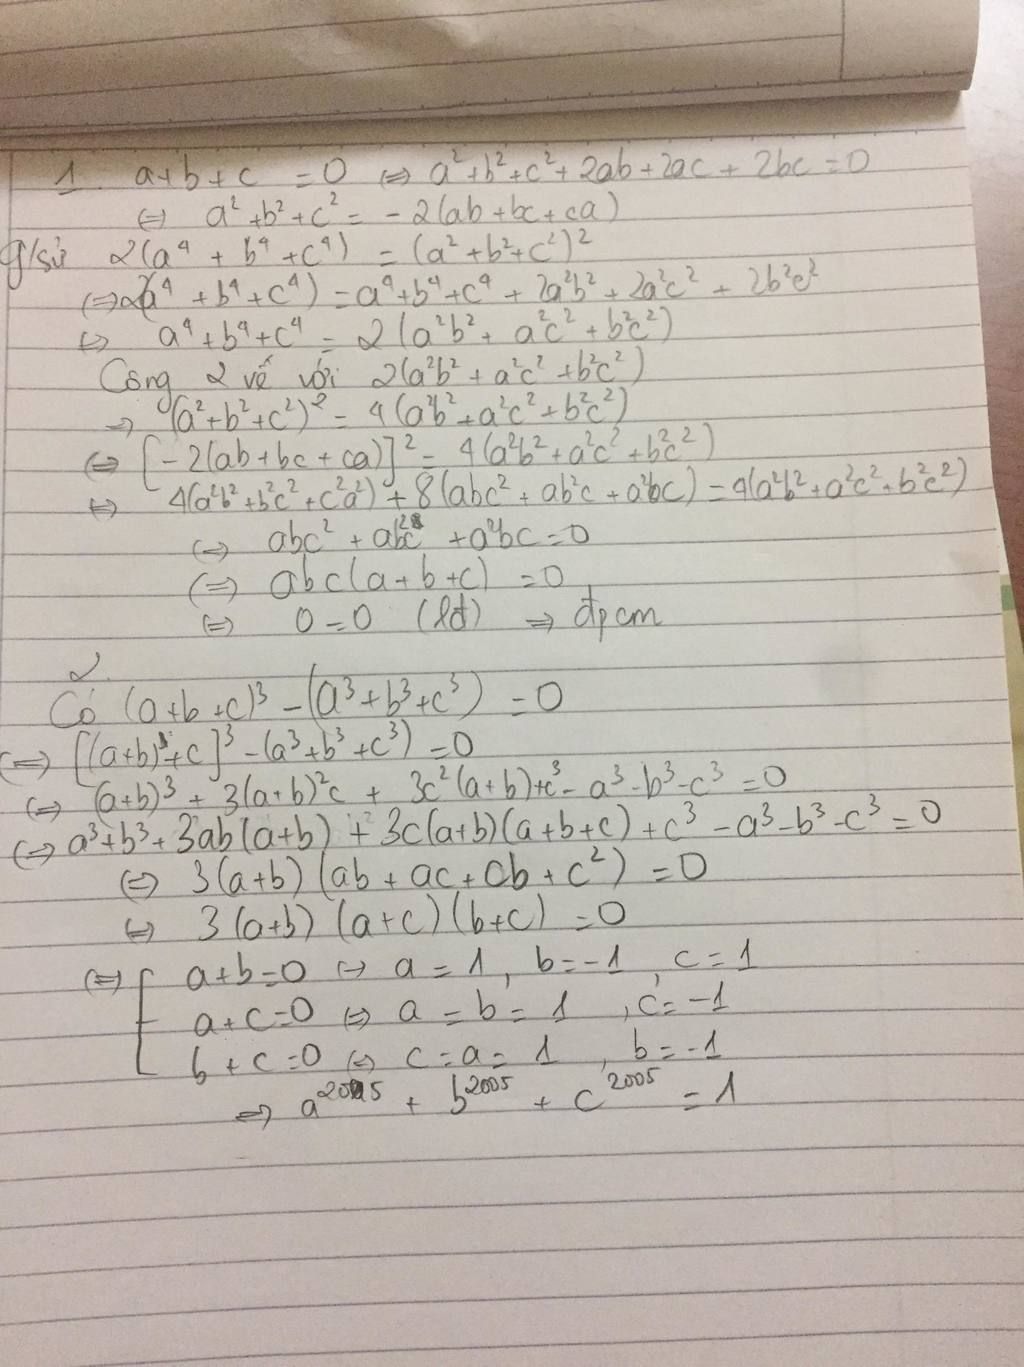 1. a+b+c = 0 ⇔ a²+b²+c²+2ab+2ac+2bc=0
⇔ a²+b²+c² = -2(ab+bc+ca)
g/sử 2(a⁴+b⁴+c⁴) = (a²+b²+c²)²
⇔ 2(a⁴+b⁴+c⁴) = a⁴+b⁴+c⁴+2a²b²+2a²c²+2b²c²
⇔ a⁴+b⁴+c⁴ = 2(a²b²+a²c²+b²c²)
Công 2 vế với 2(a²b²+a²c²+b²c²)
→ (a²+b²+c²)² = 4(a²b²+a²c²+b²c²)
⇔ [-2(ab+bc+ca)]² = 4(a²b²+a²c²+b²c²)
⇔ 4(a²b²+b²c²+c²a²)+8(abc²+ab²c+a²bc) = 4(a²b²+a²c²+b²c²)
⇔ abc²+ab²c+a²bc=0
⇔ abc(a+b+c) = 0
⇔ 0=0 (lđ) ⇒ đpcm
2.
Có (a+b+c)³ - (a³+b³+c³) = 0
⇔ [(a+b)+c]³ - (a³+b³+c³) = 0
⇔ (a+b)³ + 3(a+b)²c + 3c²(a+b)+c³-a³-b³-c³ = 0
⇔ a³+b³+3ab(a+b)+3c(a+b)(a+b+c)+c³-a³-b³-c³ = 0
⇔ 3(a+b)(ab+ac+cb+c²) = 0
⇔ 3(a+b)(a+c)(b+c) = 0
⇔ [ a+b=0 ⇔ a = 1, b=-1, c=1
a+c=0 ⇔ a = b = 1, c=-1
b+c=0 ⇔ c=a= 1, b=-1
⇒ a²⁰⁰⁵ + b²⁰⁰⁵ + c²⁰⁰⁵ = 1